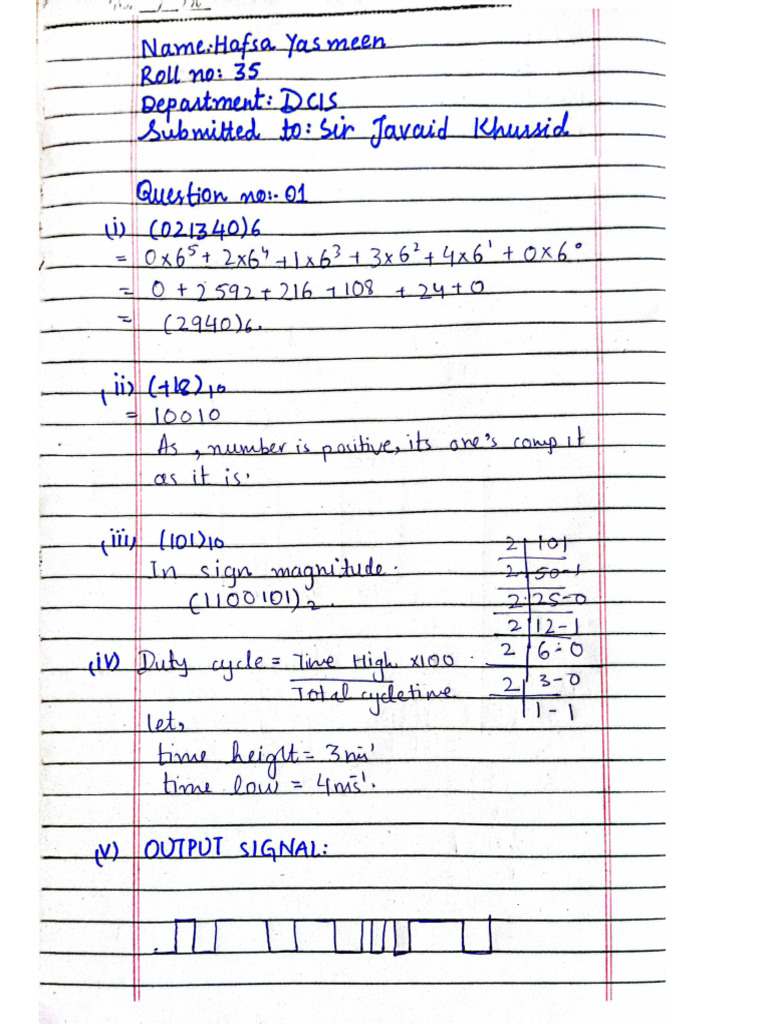 Name: Hafsa Yasmeen
Roll no: 35
Department: DCIS
Submitted to: Sir Javaid Khurssid
Question no:- 01
(i) (021340)6
= 0×6⁵ + 2×6⁴ + 1×6³ + 3×6² + 4×6¹ + 0×6°
= 0 + 2592 + 216 + 108 + 24 + 0
= (2940)6.
(ii) (+18)10
= 10010
As, number is positive, its one's comp it
as it is.
(iii) (101)10
In sign magnitude.
(1100101)2.
2 | 101
2 | 50-1
2 | 25-0
2 | 12-1
2 | 6-0
2 | 3-0
1-1
(iv) Duty cycle = Time High ×100
Total cycletime
let,
time height = 3ms'
time low = 4ms'.
(v) OUTPUT SIGNAL: